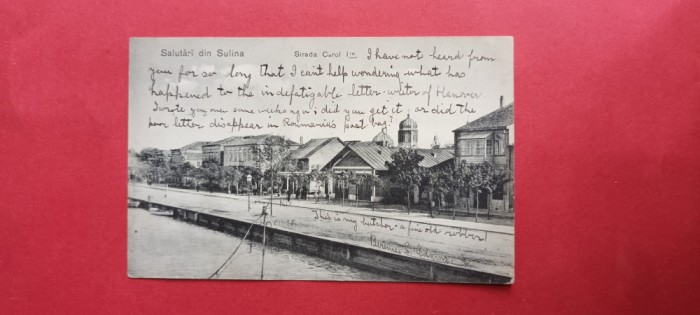 Salutări din Sulina
Strada Carol I
I have not heard from
you for so long that I can't help wondering what has
happened to the indefatigable letter-writer of Hanover
I wrote you one some weeks ago; did you get it, or did the
poor letter disappear in Roumania's post bag?
This is my butcher - a fine old robber!